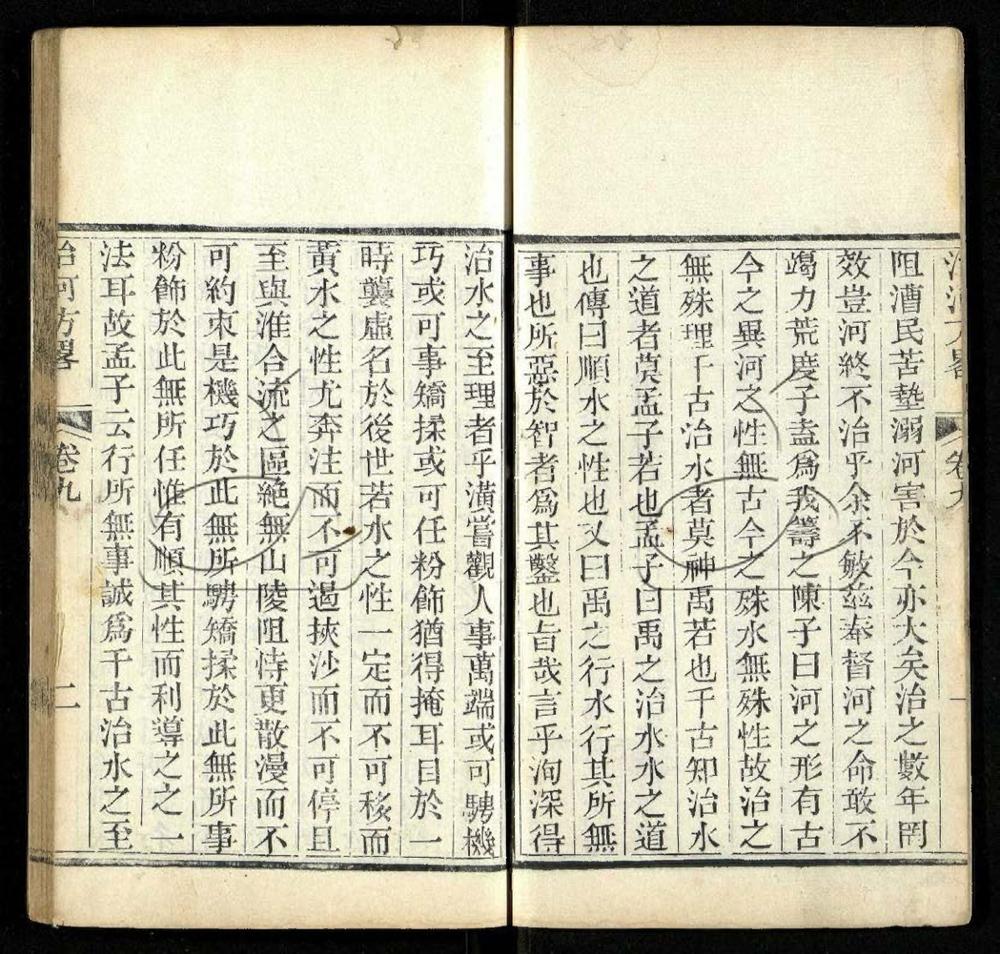 治河方畧 卷九 一
阻漕民苦墊溺河害於今亦大矣治之數年罔
效豈河終不治乎余不敏兹奉督河之命敢不
蠲力荒度子盍爲我籌之陳子曰河之形有古
今之異河之性無古今之殊水無殊性故治之
無殊理千古治水者莫神禹若也千古知治水
之道者莫孟子若也孟子曰禹之治水水之道
也傳曰順水之性也又曰禹之行水行其所無
事也所惡於智者爲其鑿也旨哉言乎洵深得
治水之至理者乎潢嘗觀人事萬端或可騁機
巧或可事矯揉或可任粉飾猶得掩耳目於一
時襲虛名於後世若水之性一定而不可移而
黃水之性尤奔注而不可遏挾沙而不可停且
至與淮合流之區絶無山陵阻恃更散漫而不
可約束是機巧於此無所騁矯揉於此無所事
粉飾於此無所任惟有順其性而利導之之一
法耳故孟子云行所無事誠爲千古治水之至
治河方畧 卷九 二